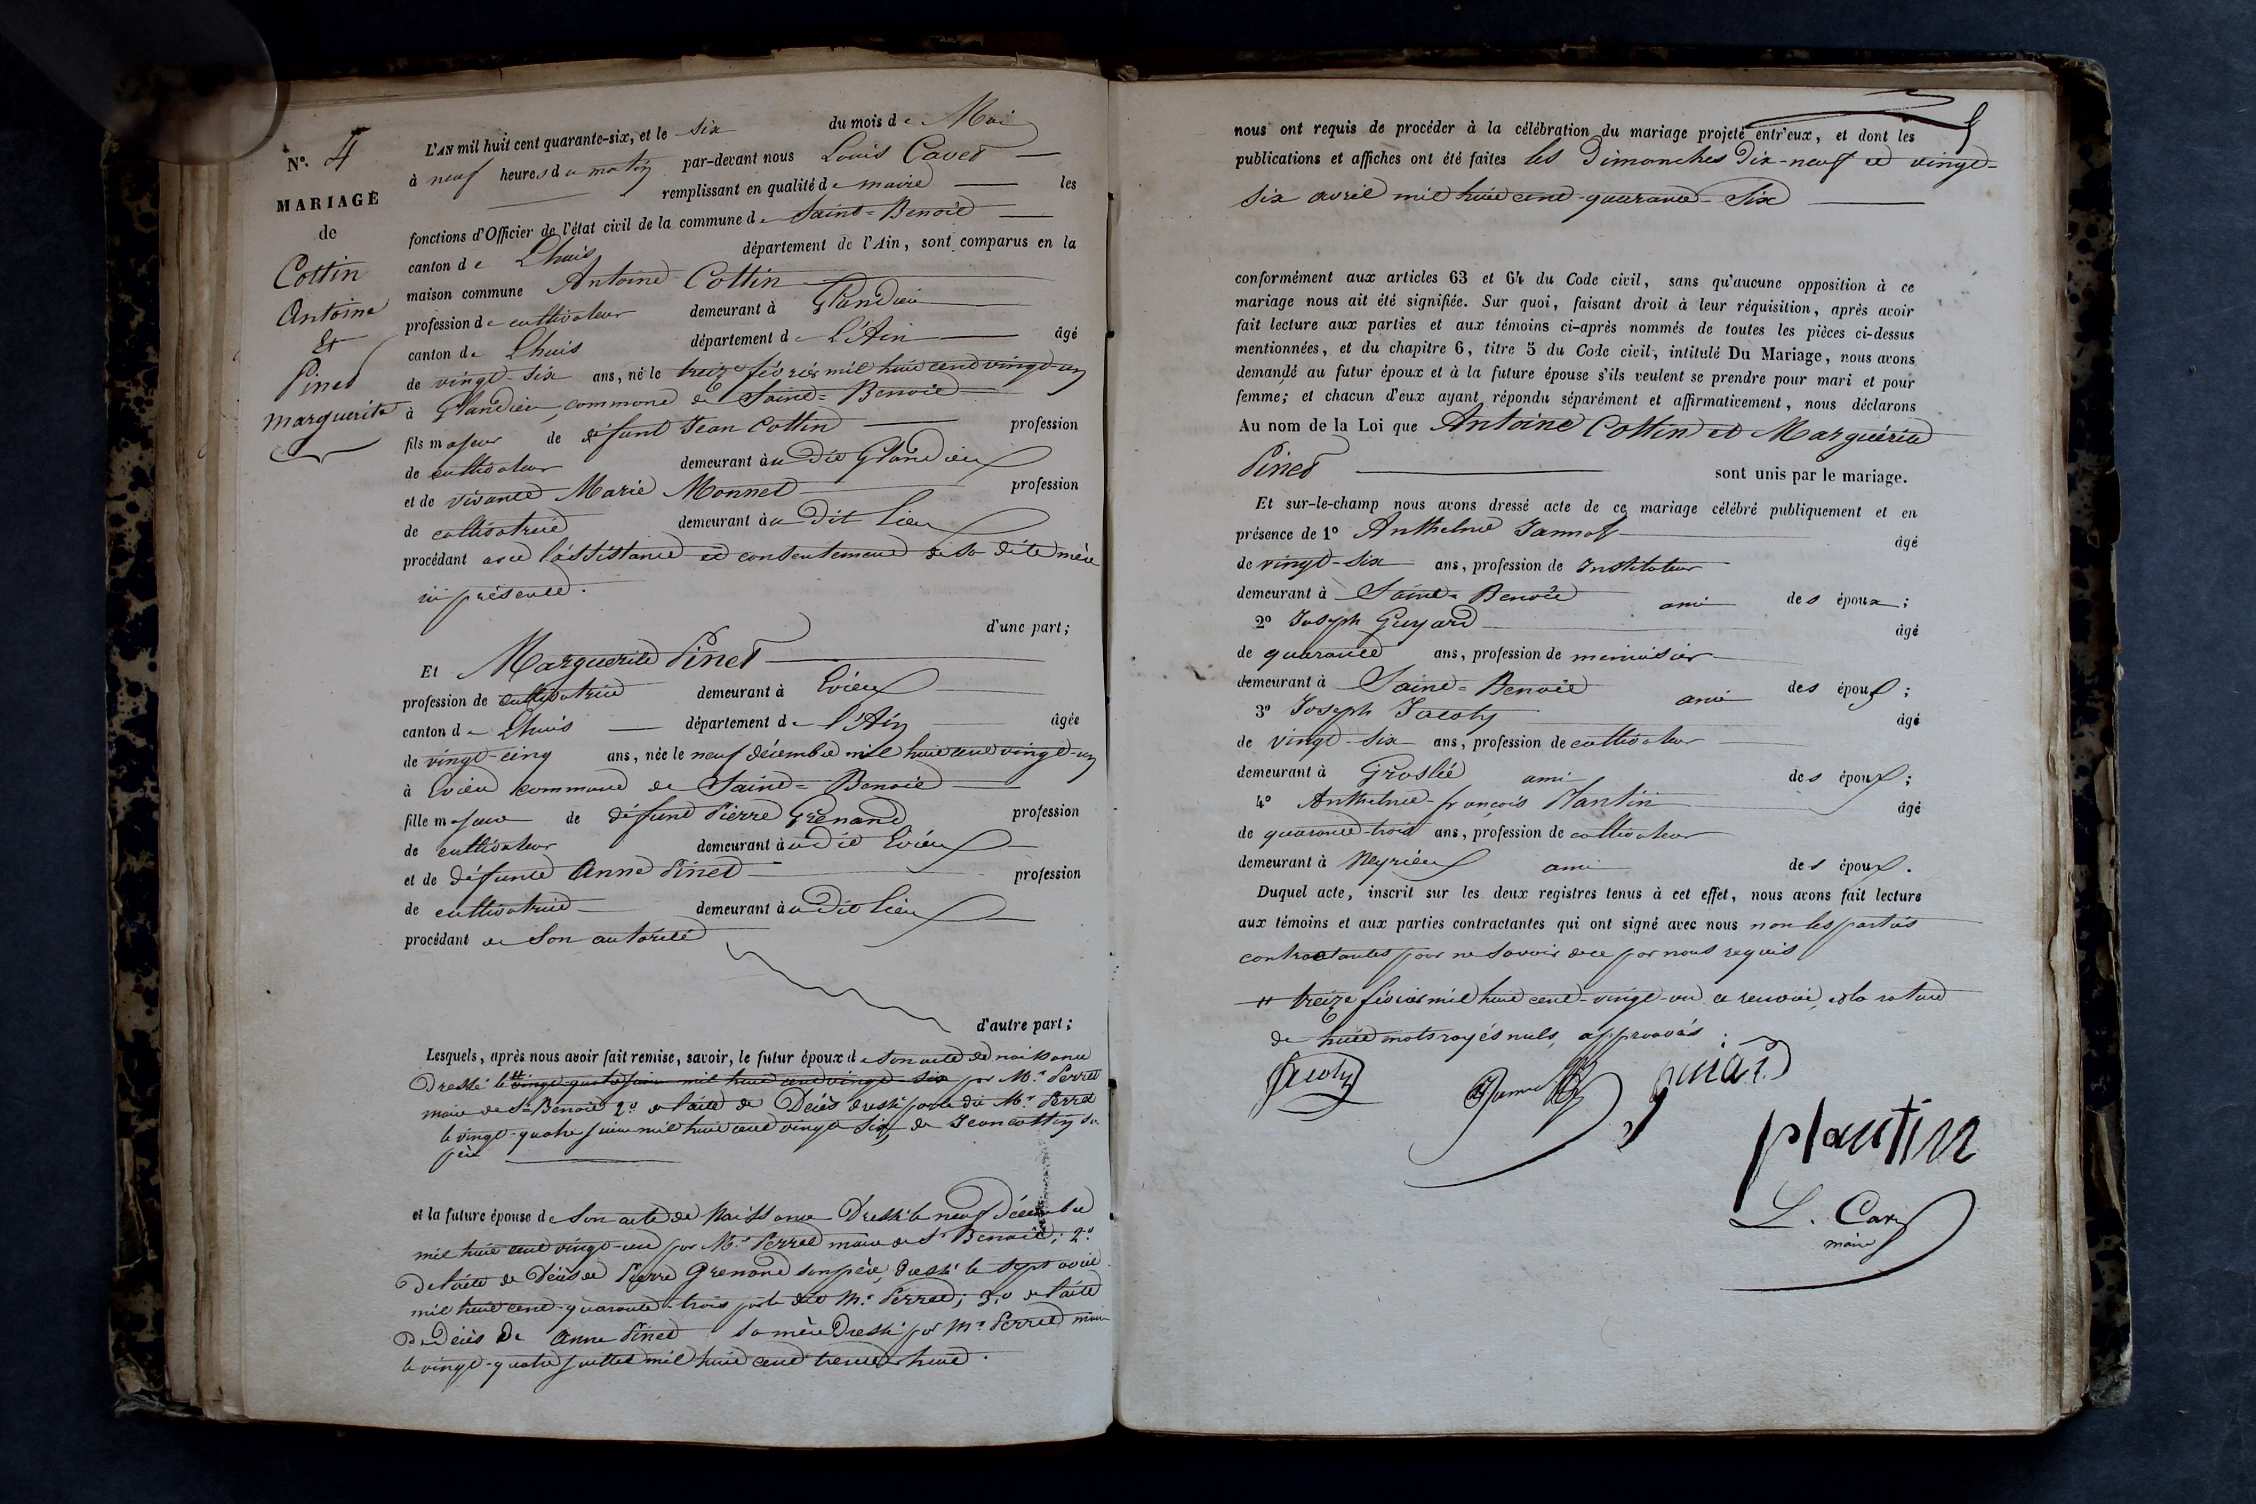 N.º 4
MARIAGE
de
Cottin
Antoine
Et
Pinet
marguerite
L'AN mil huit cent quarante-six, et le six du mois de Mai
à neuf heures du matin par-devant nous Louis Cavet
remplissant en qualité de maire les
fonctions d'Officier de l'état civil de la commune de Saint-Benoit
canton de Lhuis département de l'Ain, sont comparus en la
maison commune Antoine Cottin
profession de cultivateur demeurant à Glandieu
canton de Lhuis département de l'Ain âgé
de vingt-six ans, né le treize février mil huit cent vingt-un
à Glandieu, commune de Saint-Benoit
fils majeur de défunt Jean Cottin profession
de cultivateur demeurant au dit Glandieu
et de vivante Marie Monnet profession
de cultivatrice demeurant au dit lieu
procédant avec l'assistance et consentement de sa dite mère
ici présente.
d'une part;
Et Marguerite Pinet
profession de cultivatrice demeurant à Evieu
canton de Lhuis département de l'Ain âgée
de vingt-cinq ans, née le neuf décembre mil huit cent vingt-un
à Evieu commune de Saint-Benoit
fille majeure de défunt Pierre Grenand profession
de cultivateur demeurant au dit Evieu
et de défunte Anne Pinet profession
de cultivatrice demeurant au dit lieu
procédant de son autorité
d'autre part;
Lesquels, après nous avoir fait remise, savoir, le futur époux de son acte de naissance
Dressé le # vingt-quatre juin mil huit cent vingt-six par Mr. Perret
maire de St Benoit 2º de l'acte de Décès dressé par le dit Mr. Perret
le vingt-quatre juin mil huit cent vingt six de Jean cottin son
père
et la future épouse de son acte de Naissance Dressé le neuf décembre
mil huit cent vingt-un par Mr. Perret maire de St Benoit; 2º
De l'acte de Décès de Pierre Grenand son père, dressé le sept avril
mil huit cent quarante-trois par le dit Mr. Perret; 3º de l'acte
De Décès de Anne Pinet sa mère Dressé par Mr. Perret maire
le vingt-quatre juillet mil huit cent trente huit.
nous ont requis de procéder à la célébration du mariage projeté entr'eux, et dont les
publications et affiches ont été faites les Dimanches Dix-neuf et vingt-
six avril mil huit cent quarante-Six
conformément aux articles 63 et 64 du Code civil, sans qu'aucune opposition à ce
mariage nous ait été signifiée. Sur quoi, faisant droit à leur réquisition, après avoir
fait lecture aux parties et aux témoins ci-après nommés de toutes les pièces ci-dessus
mentionnées, et du chapitre 6, titre 5 du Code civil, intitulé Du Mariage, nous avons
demandé au futur époux et à la future épouse s'ils veulent se prendre pour mari et pour
femme; et chacun d'eux ayant répondu séparément et affirmativement, nous déclarons
Au nom de la Loi que Antoine Cottin et Marguérite
Pinet sont unis par le mariage.
Et sur-le-champ nous avons dressé acte de ce mariage célébré publiquement et en
présence de 1º Anthelme Jannot âgé
de vingt-six ans, profession de Instituteur
demeurant à Saint-Benoit ami des époux;
2º Joseph Guyard âgé
de quarante ans, profession de menuisier
demeurant à Saint-Benoit ami des époux;
3º Joseph Jacoby âgé
de vingt-six ans, profession de cultivateur
demeurant à Groslée ami des époux;
4º Anthelme-françois Plantin âgé
de quarante-trois ans, profession de cultivateur
demeurant à Neyrieu ami des époux.
Duquel acte, inscrit sur les deux registres tenus à cet effet, nous avons fait lecture
aux témoins et aux parties contractantes qui ont signé avec nous non les parties
contractantes pour ne savoir de ce par nous requis
# treize février mil huit cent-vingt-un ce renvoi, et la rature
de huit mots rayés nuls, approuvés.
Jacoby
Jannot
guiard
plantin
L. Cavet
maire